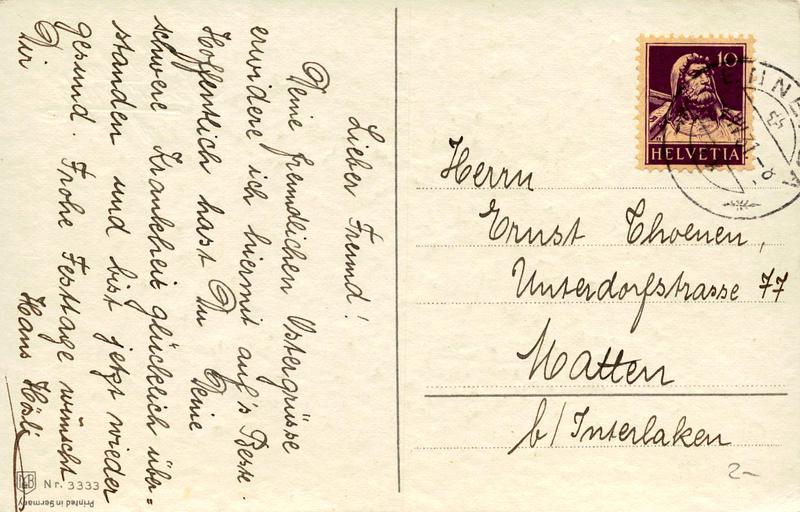 Lieber Freund!
Deine freundlichen Ostergrüsse
erwidere ich hiermit auf's Beste.
Hoffentlich hast Du Deine
schwere Krankheit glücklich über=
standen und bist jetzt wieder
gesund. Frohe Festtage wünscht
Dir Hans Hösli
10
HELVETIA
Herrn
Ernst Thoenen,
Unterdorfstrasse 77
Matten
b/Interlaken
2-
Nr. 3333
Printed in Germany